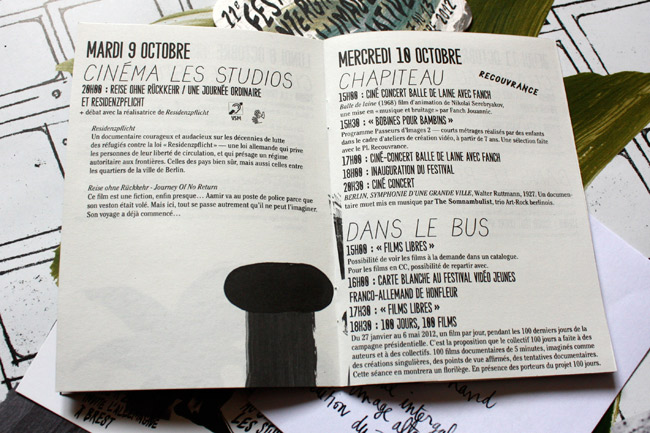 11e
FES
INTERG
2012
MARDI 9 OCTOBRE
CINÉMA LES STUDIOS
20H00 : REISE OHNE RÜCKKEHR / UNE JOURNÉE ORDINAIRE
ET RESIDENZPFLICHT
+ débat avec la réalisatrice de Residenzpflicht
VSM
Residenzpflicht
Un documentaire courageux et audacieux sur les décennies de lutte
des réfugiés contre la loi « Residenzpflicht » — une loi allemande qui prive
les personnes de leur liberté de circulation, et qui présage un régime
autoritaire aux frontières. Celles des pays bien sûr, mais aussi celles entre
les quartiers de la ville de Berlin.
Reise ohne Rückkehr - Journey Of No Return
Ce film est une fiction, enfin presque... Aamir va au poste de police parce que
son veston était volé. Mais ici, tout se passe autrement qu'il ne peut l'imaginer.
Son voyage a déjà commencé...
MERCREDI 10 OCTOBRE
CHAPITEAU
RECOUVRANCE
15H00 : CINÉ CONCERT BALLE DE LAINE AVEC FANCH
Balle de laine (1968) film d'animation de Nikolai Serebryakov,
une mise en « musique et bruitage » par Fanch Jouannic.
15H30 : « BOBINES POUR BAMBINS »
Programme Passeurs d'Images 2 — courts métrages réalisés par des enfants
dans le cadre d'ateliers de création vidéo, à partir de 7 ans. Une sélection faite
avec le PL Recouvrance.
17H00 : CINÉ-CONCERT BALLE DE LAINE AVEC FANCH
18H00 : INAUGURATION DU FESTIVAL
20H30 : CINÉ CONCERT
BERLIN, SYMPHONIE D'UNE GRANDE VILLE, Walter Ruttmann, 1927. Un documen-
taire muet mis en musique par The Somnambulist, trio Art-Rock berlinois.
DANS LE BUS
15H00 : « FILMS LIBRES »
Possibilité de voir les films à la demande dans un catalogue.
Pour les films en CC, possibilité de repartir avec.
16H00 : CARTE BLANCHE AU FESTIVAL VIDÉO JEUNES
FRANCO-ALLEMAND DE HONFLEUR
17H30 : « FILMS LIBRES »
18H30 : 100 JOURS, 100 FILMS
Du 27 janvier au 6 mai 2012, un film par jour, pendant les 100 derniers jours de la
campagne présidentielle. C'est la proposition que le collectif 100 jours a faite à des
auteurs et à des collectifs. 100 films documentaires de 5 minutes, imaginés comme
des créations singulières, des points de vue affirmés, des tentatives documentaires.
Cette séance en montrera un florilège. En présence des porteurs du projet 100 jours.
À BREST
LES S
intergal